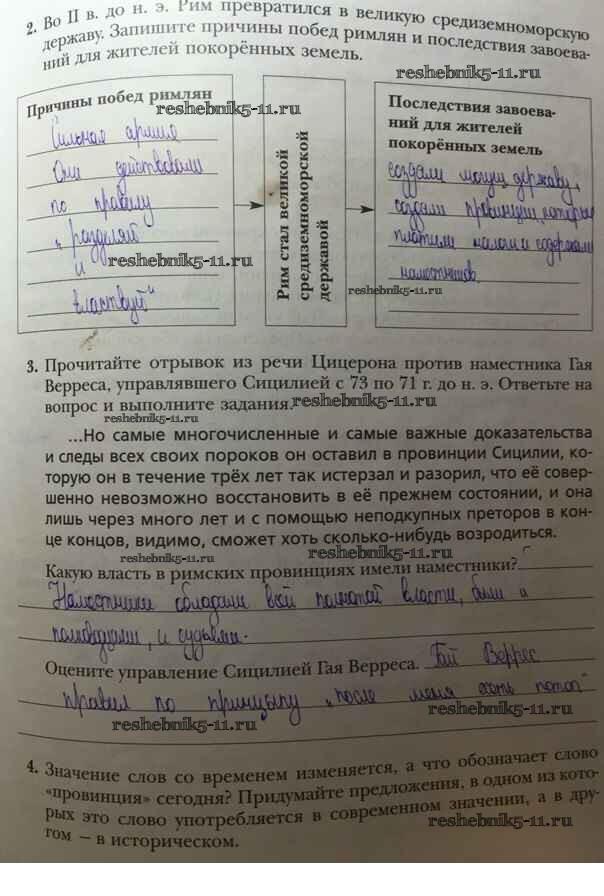 2. Во II в. до н. э. Рим превратился в великую средиземноморскую
державу. Запишите причины побед римлян и последствия завоева-
ний для жителей покорённых земель.
reshebnik5-11.ru
Причины побед римлян
reshebnik5-11.ru
Сильная армия
Они действовали
по правилу
„разделяй
и
reshebnik5-11.ru
властвуй"
Рим стал великой
средиземноморской
державой
Последствия завоева-
ний для жителей
покорённых земель
создали могущ. державу,
создали провинции, которые
платили налоги и содержали
наместников.
reshebnik5-11.ru
3. Прочитайте отрывок из речи Цицерона против наместника Гая
Верреса, управлявшего Сицилией с 73 по 71 г. до н. э. Ответьте на
вопрос и выполните задания.
reshebnik5-11.ru
...Но самые многочисленные и самые важные доказательства
и следы всех своих пороков он оставил в провинции Сицилии, ко-
торую он в течение трёх лет так истерзал и разорил, что её совер-
шенно невозможно восстановить в её прежнем состоянии, и она
лишь через много лет и с помощью неподкупных преторов в кон-
це концов, видимо, сможет хоть сколько-нибудь возродиться.
reshebnik5-11.ru
reshebnik5-11.ru
Какую власть в римских провинциях имели наместники?
Наместники обладали всей полнотой власти, были и
полководцами, и судьями.
Оцените управление Сицилией Гая Верреса. Гай Веррес
правил по принципу „после меня хоть потоп"
reshebnik5-11.ru
reshebnik5-11.ru
4. Значение слов со временем изменяется, а что обозначает слово
«провинция» сегодня? Придумайте предложения, в одном из кото-
рых это слово употребляется в современном значении, а в дру-
гом – в историческом.
reshebnik5-11.ru
reshebnik5-11.ru